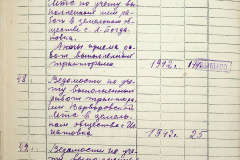 МТС по учету вы-
полненных ими ра-
бот в земельном об-
ществе с. А-Богда-
новка.
Акты приема ра-
бот выполненных
тракторами 1943
48. Ведомости по уче-
ту выполненных
работ трактора-
ми Варваровской
МТС в земель-
ном обществе с. Иг-
натовка 1943 25
49. Ведомости по уче-
ту выполненных